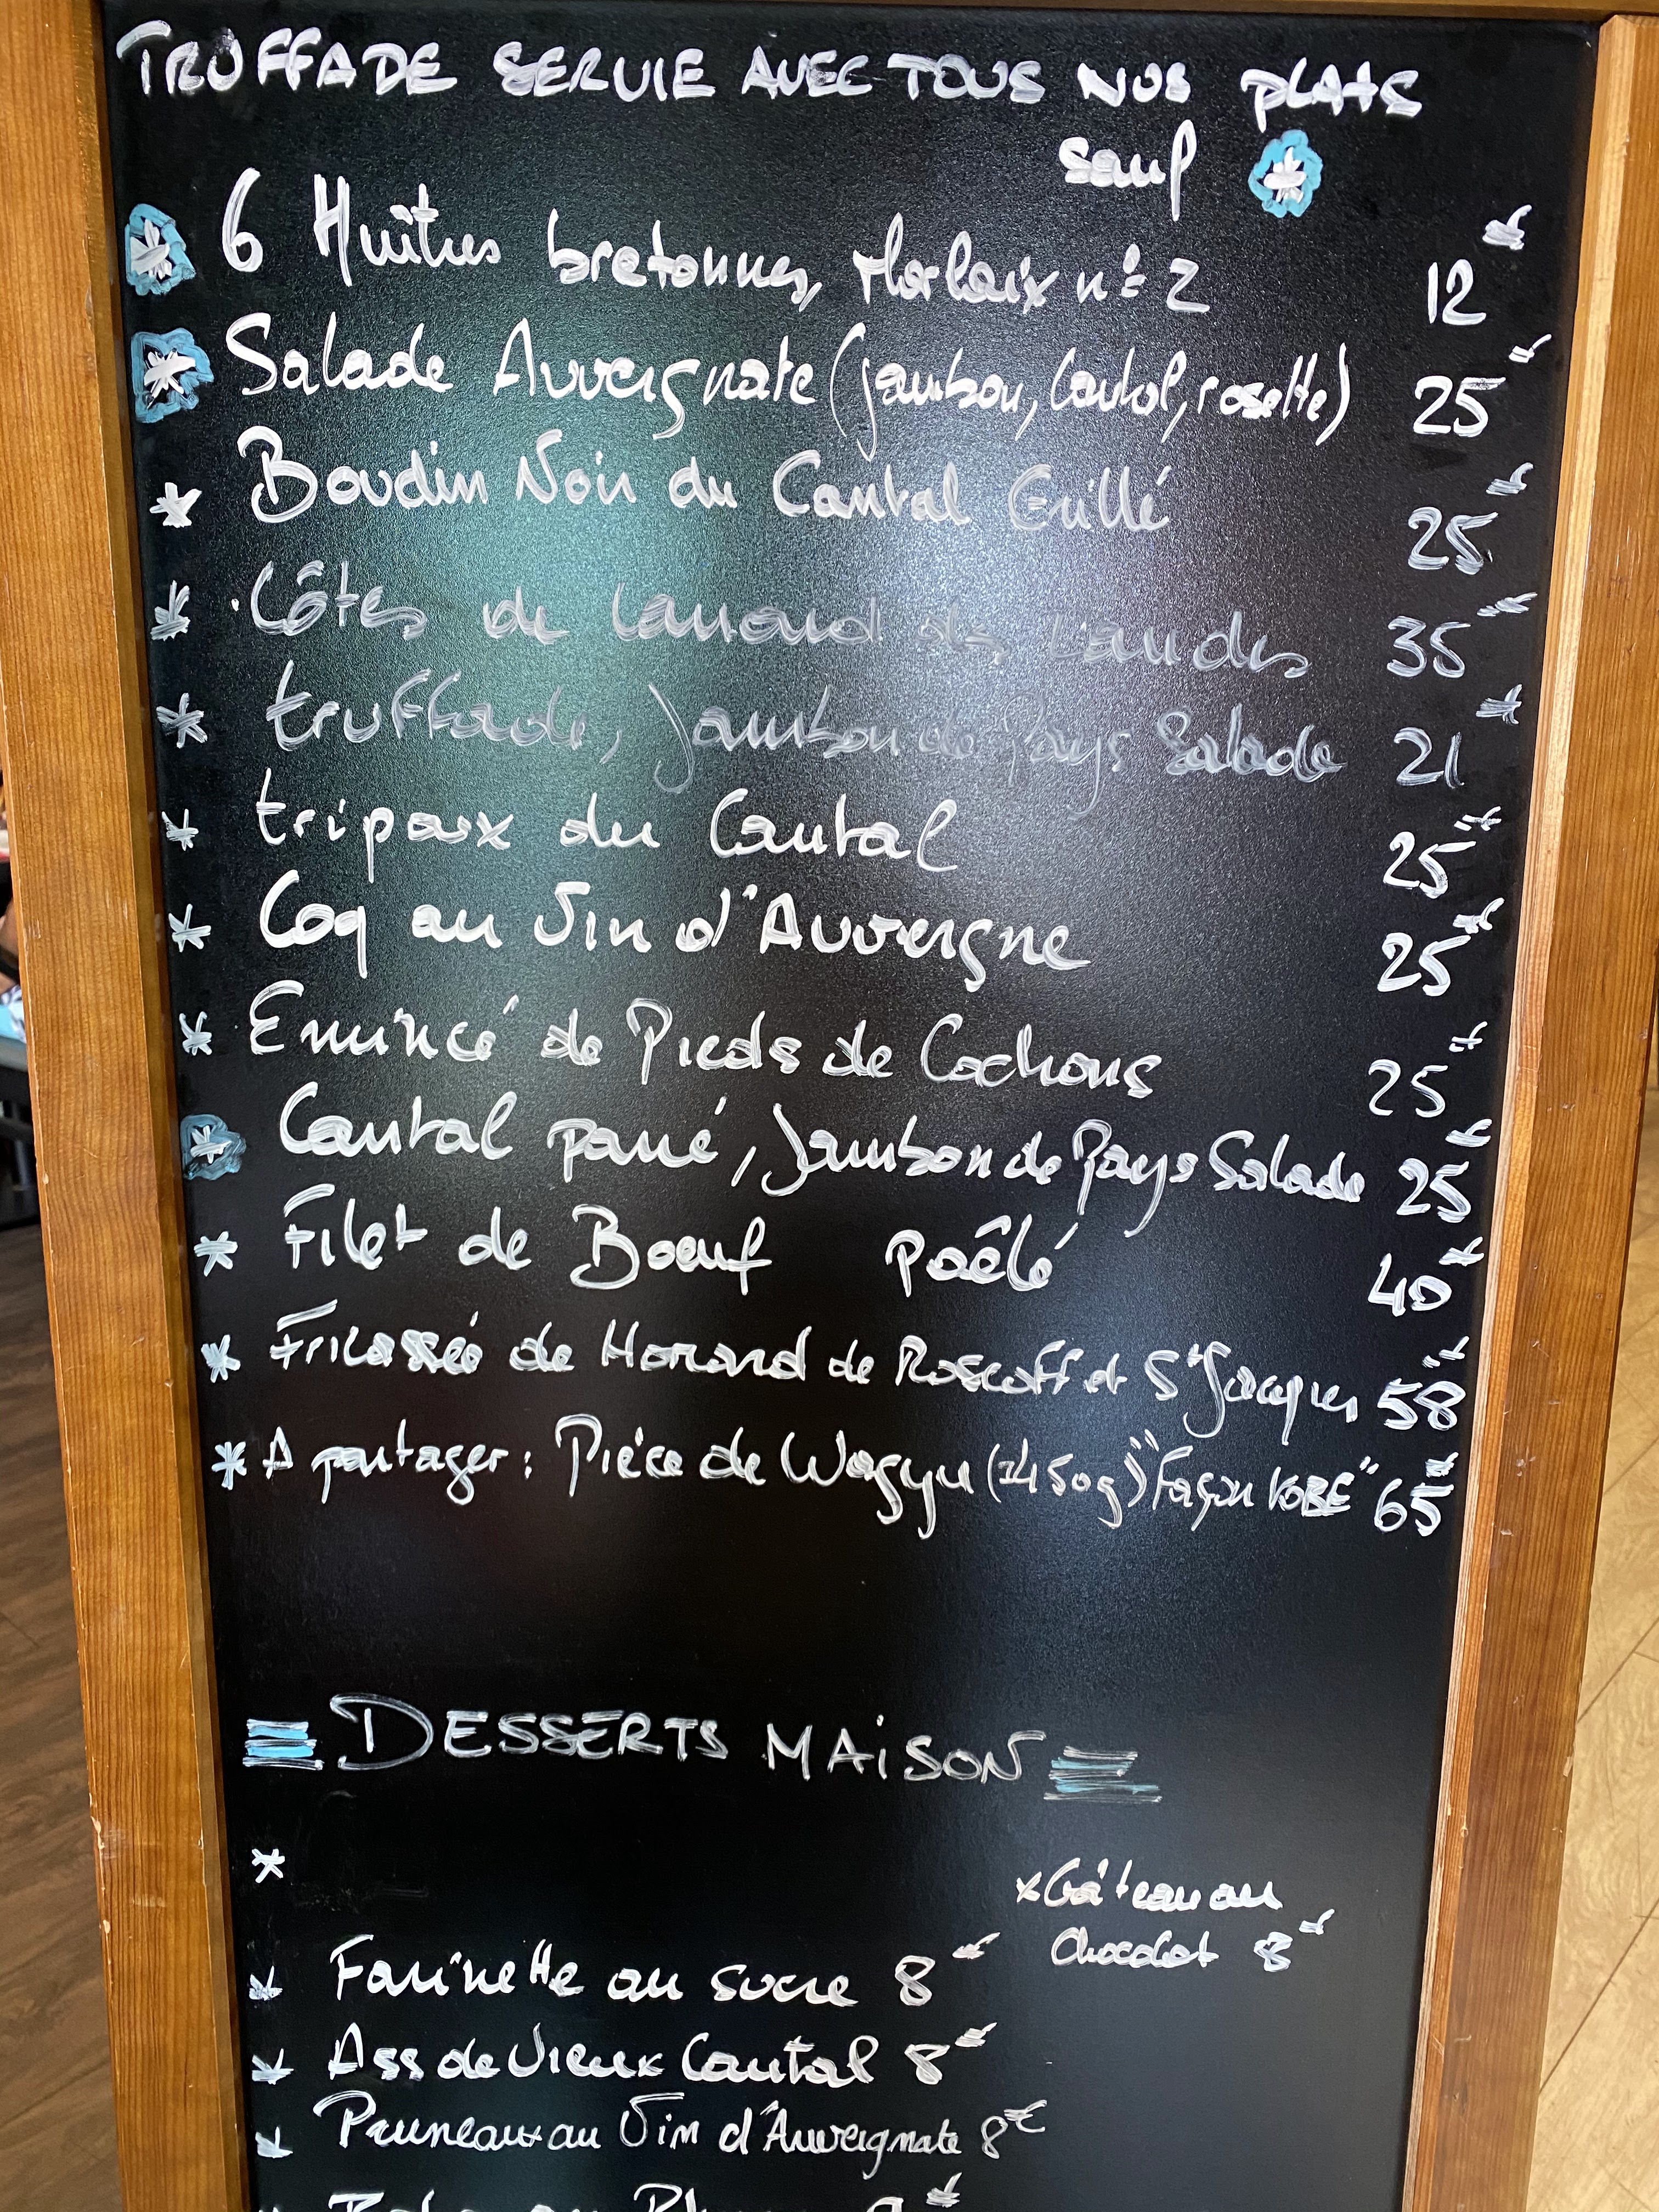 TRUFFADE SERVIE AVEC TOUS NOS PLATS
sauf *
* 6 Huîtres bretonnes, Morlaix n° 2 12 €
* Salade Auvergnate (jambon, Cantal, rosette) 25 €
* Boudin Noir du Cantal Grillé 25 €
* Côtes de Canard des Landes 35 €
* truffade, Jambon de Pays Salade 21 €
* tripoux du Cantal 25 €
* Coq au Vin d'Auvergne 25 €
* Emincé de Pieds de Cochons 25 €
* Cantal pané, Jambon de Pays Salade 25 €
* Filet de Boeuf poêlé 40 €
* Fricassée de Homard de Roscoff et St Jacques 58 €
* A partager : Pièce de Wagyu (±450g) "Façon KOBE" 65 €
DESSERTS MAISON
*
* Gâteau au
Chocolat 8 €
* Farinette au sucre 8 €
* Ass de Vieux Cantal 8 €
* Pruneaux au Vin d'Auvergnate 8 €